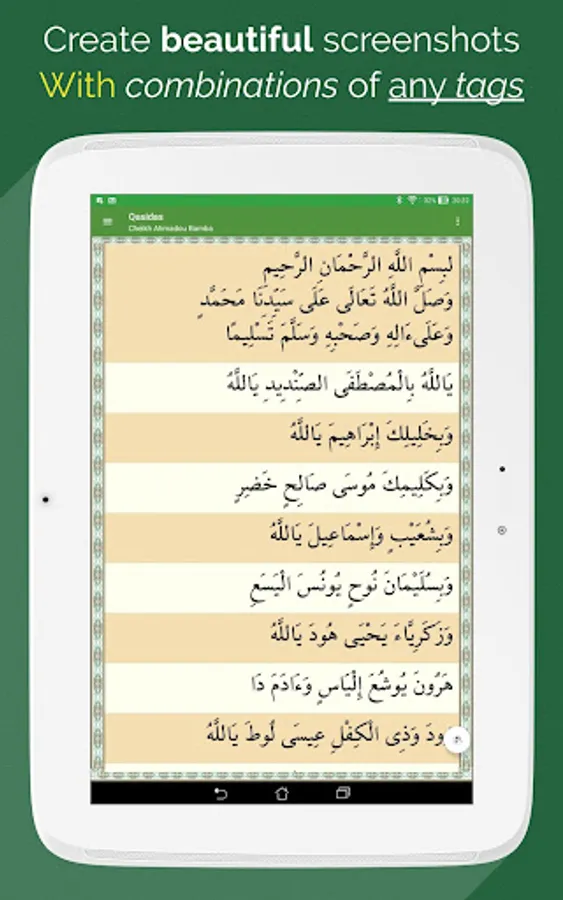 Create beautiful screenshots
With combinations of any tags
Qasidas
Cheikh Ahmadou Bamba
لبِسْمِ اللَّهِ الرَّحْمَانِ الرَّحِيمِ
وَصَلَّ اللَّهُ تَعَالَى عَلَى سَيِّدِنَا مَحَمَّدٍ
وَعَلَىءَالِهِ وَصَحْبِهِ وَسَلَّمَ تَسْلِيمًا
يَاللَّهُ بِالْمُصْطَفَى الصِّنْدِيدِ يَاللَّهُ
وَبِخَلِيلِكَ إِبْرَاهِيمَ يَاللَّهُ
وَبِكَلِيمِكَ مُوسَى صَالِحٍ خَضِرٍ
وَبِشُعَيْبٍ وَإِسْمَاعِيلَ يَاللَّهُ
وَبِسُلَيْمَانَ نُوحٍ يُونُسَ الْيَسَعِ
وَزَكَرِيَّاءَ يَحْيَى هُودَ يَاللَّهُ
هَرُونَ يُوشُعَ إِلْيَاسٍ وَءَادَمَ دَا
ودَ وَذِى الْكِفْلِ عِيسَى لُوطَ يَاللَّهُ